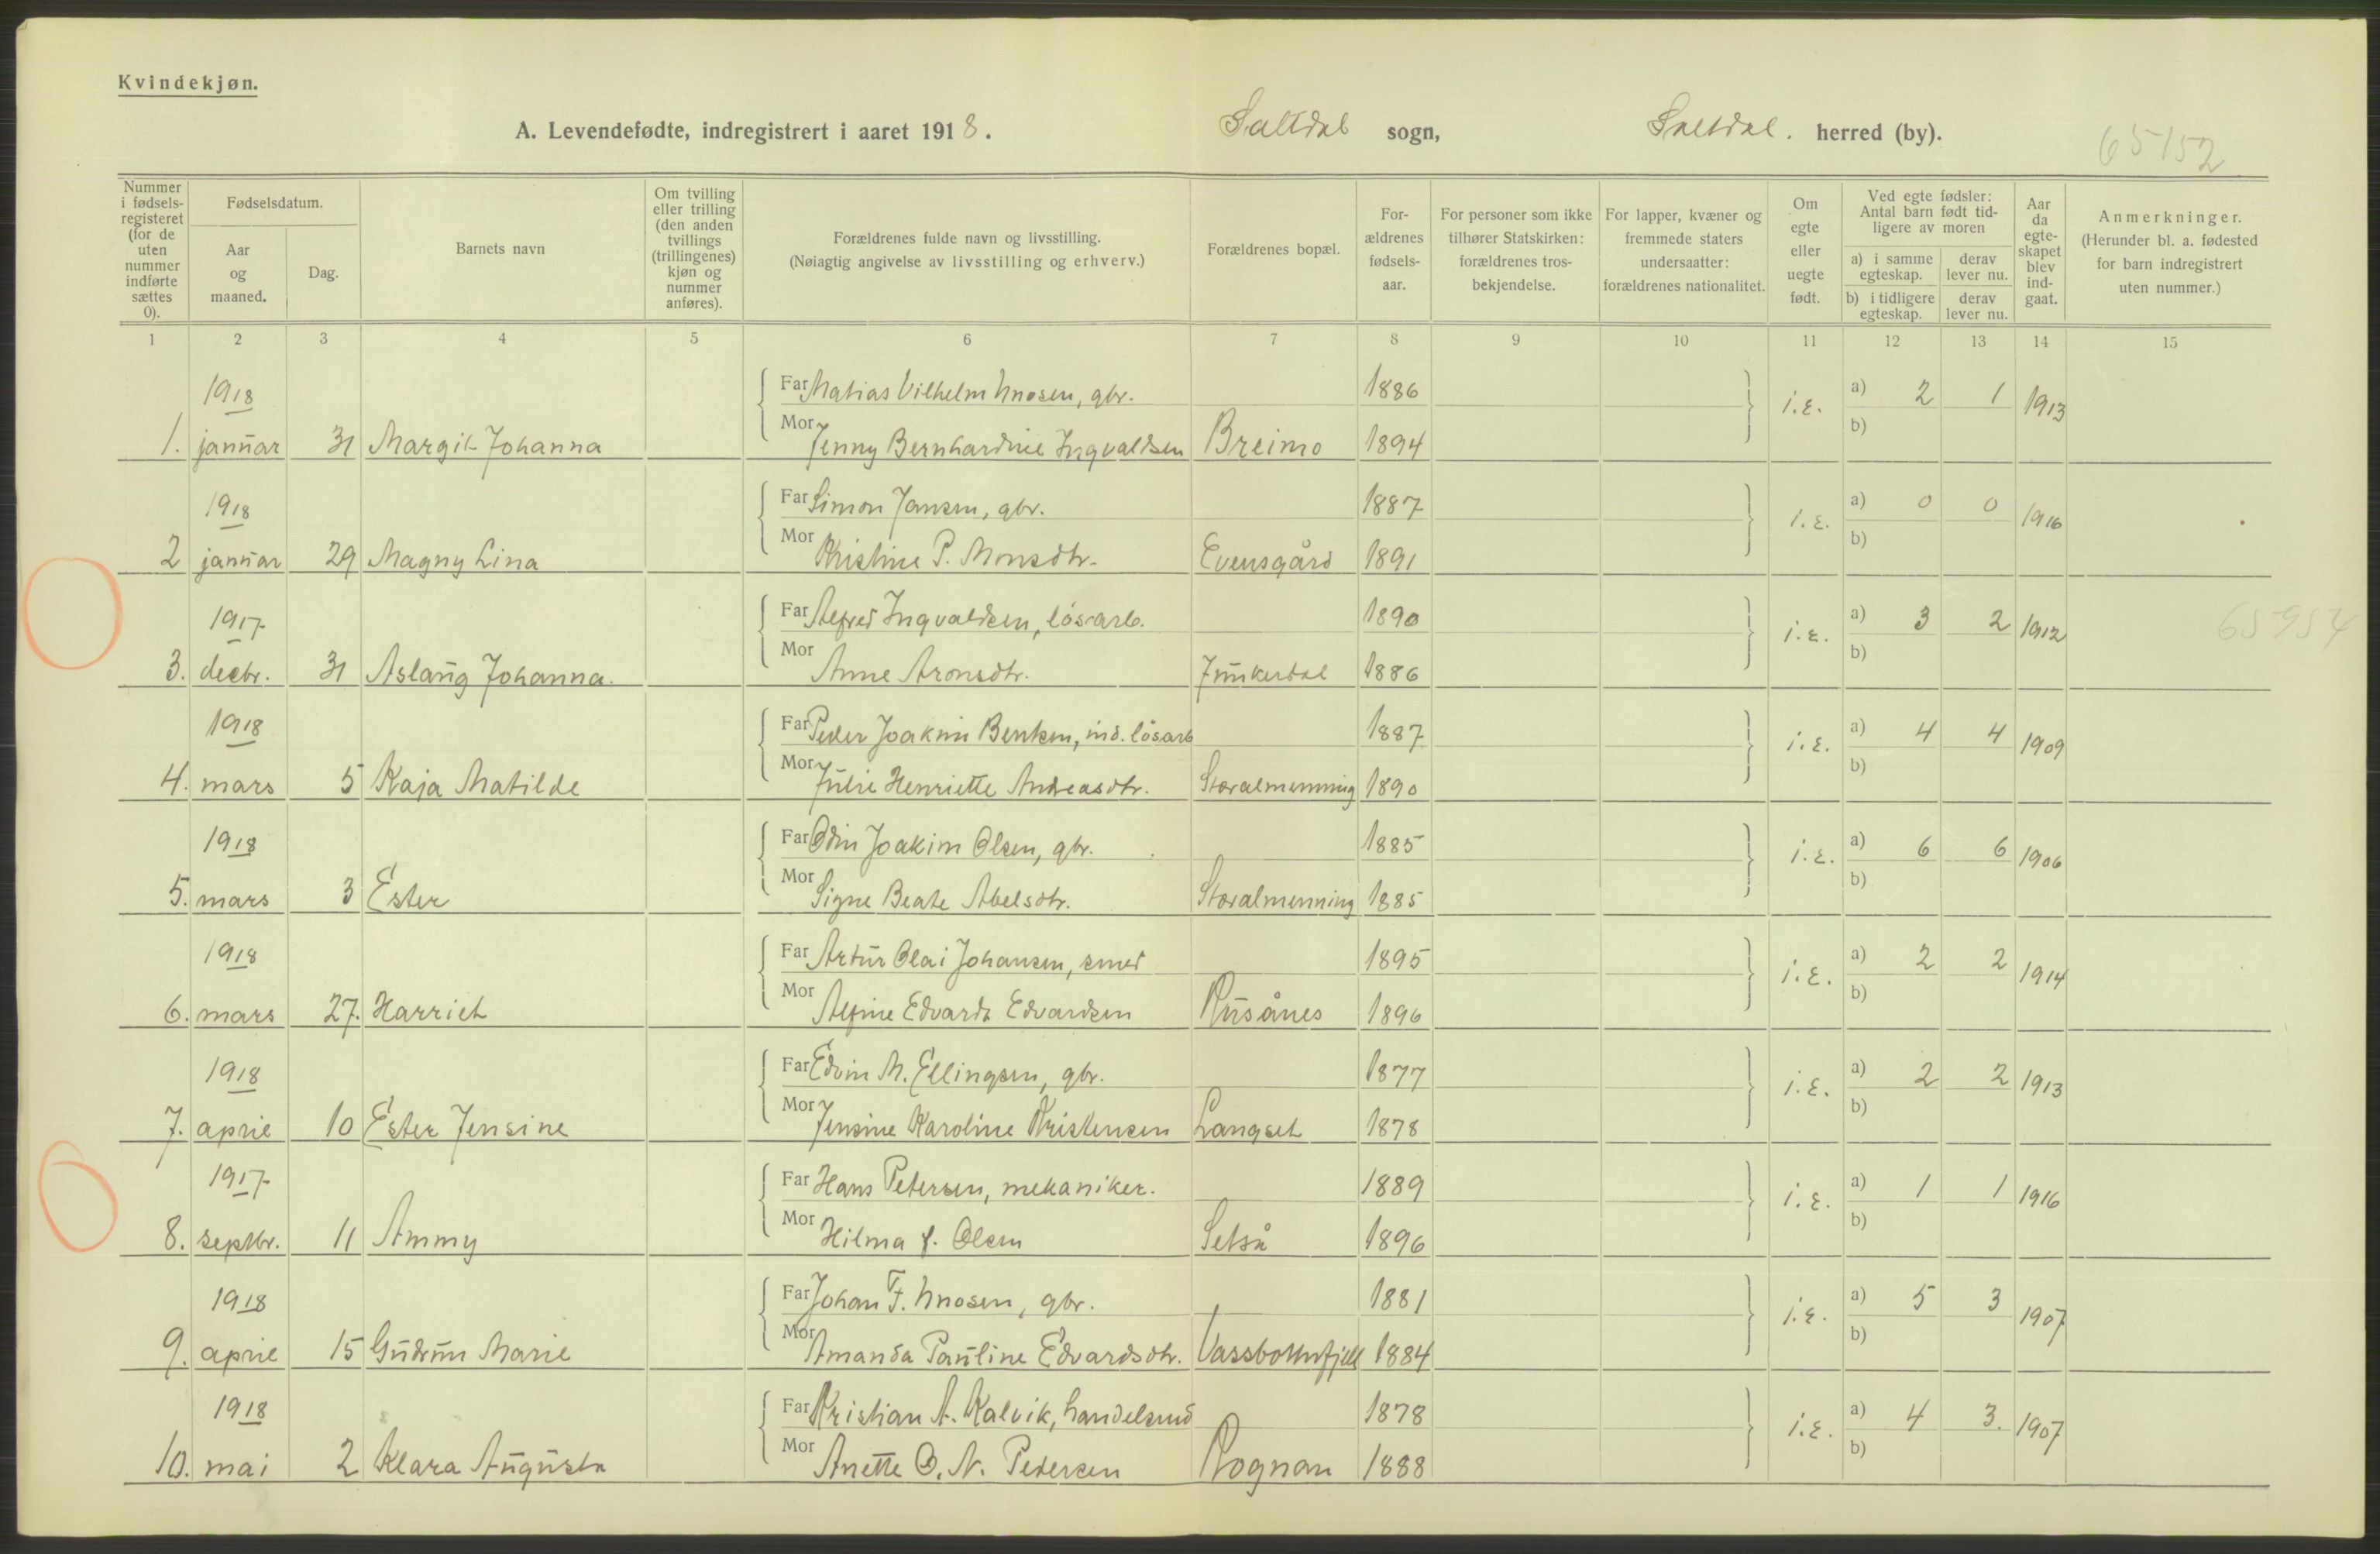 Kvindekjøn.
A. Levendefødte, indregistrert i aaret 1918. Saltdal sogn, Saltdal. herred (by).
65152
Nummer i fødsels-registeret (for de uten nummer indførte sættes 0).
Fødselsdatum.
Aar og maaned.
Dag.
Barnets navn
Om tvilling eller trilling (den anden tvillings (trillingenes) kjøn og nummer anføres).
Forældrenes fulde navn og livsstilling.
(Nøiagtig angivelse av livsstilling og erhverv.)
Forældrenes bopæl.
For-ældrenes fødsels-aar.
For personer som ikke tilhører Statskirken: forældrenes tros-bekjendelse.
For lapper, kvæner og fremmede staters undersaatter: forældrenes nationalitet.
Om egte eller uegte født.
Ved egte fødsler: Antal barn født tid-ligere av moren
a) i samme egteskap. derav lever nu.
b) i tidligere egteskap. derav lever nu.
Aar da egte-skapet blev ind-gaat.
Anmerkninger.
(Herunder bl. a. fødested for barn indregistrert uten nummer.)
1 2 3 4 5 6 7 8 9 10 11 12 13 14 15
1918 Far Matias Vilhelm Mnosen, gbr. 1886 i.e. a) 2 1 1913
1. januar 31 Margit Johanna Mor Jenny Bernhardine Ingvaldsen Breimo 1894 b)
1918 Far Simon Jansen, gbr. 1887 i.e. a) 0 0 1916
2 januar 29 Magny Lina Mor Kristine P. Monsdtr. Evensgård 1891 b)
1917 Far Alfred Ingvaldsen, løsarb. 1890 i.e. a) 3 2 1912 65954
3. decbr. 31 Aslaug Johanna. Mor Anne Aronsdtr. Junkerdal 1886 b)
1918 Far Peder Joakim Bentsen, ind. løsarb 1887 i.e. a) 4 4 1909
4. mars 5 Kaja Matilde Mor Julie Henriette Andreasdtr. Storalmenning 1890 b)
1918 Far Odin Joakim Olsen, gbr. 1885 i.e. a) 6 6 1906
5. mars 3 Ester Mor Signe Beate Abelsdtr. Storalmenning 1885 b)
1918 Far Artur Olai Johansen, smed 1895 i.e. a) 2 2 1914
6. mars 27. Harriet Mor Alfine Edvarda Edvardsen Rusånes 1896 b)
1918 Far Edvin M. Ellingsen, gbr. 1877 i.e. a) 2 2 1913
7. april 10 Ester Jensine Mor Jensine Karoline Kristensen Langset 1878 b)
1917 Far Hans Petersen, mekaniker. 1889 i.e. a) 1 1 1916
8. septbr. 11 Ammy Mor Hilma f. Olsen Setså 1896 b)
1918 Far Johan F. Mnosen, gbr. 1881 i.e. a) 5 3 1907
9. april 15 Gudrun Marie Mor Amanda Pauline Edvardsdtr. Vassbotnfjell 1884 b)
1918 Far Kristian A. Kalvik, handelsmd 1878 i.e. a) 4 3. 1907
10. mai 2 Klara Augusta Mor Anette O. N. Pedersen Rognan 1888 b)